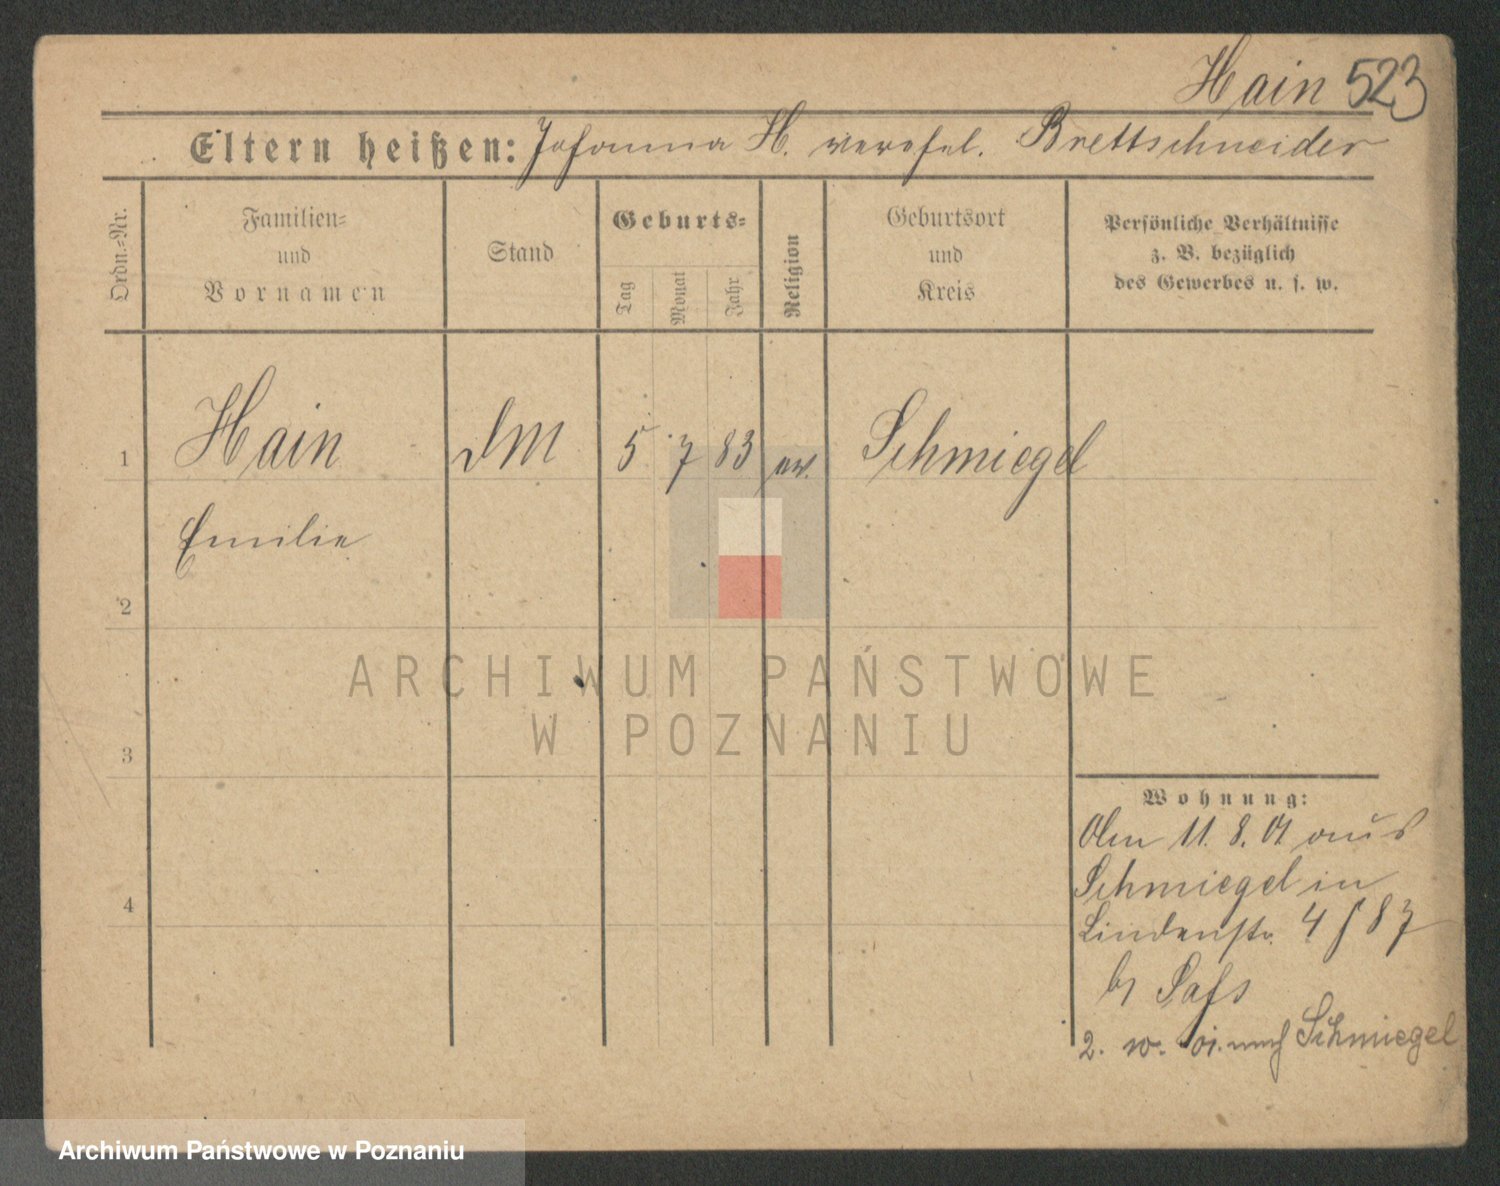 Hain 523
Eltern heißen: Johanna H. verehel. Brettschneider
Ordn.-Nr.
Familien-
und
Vornamen
Stand
Geburts-
Tag
Monat
Jahr
Religion
Geburtsort
und
Kreis
Persönliche Verhältnisse
z. B. bezüglich
des Gewerbes u. s. w.
1 Hain DM 5 7 83 ev. Schmiegel
Emilie
2
ARCHIWUM PAŃSTWOWE
W POZNANIU
3
4
Wohnung:
Am 11. 8. 01 aus
Schmiegel in
Lindenstr. 4
2. nach Schmiegel
Archiwum Państwowe w Poznaniu